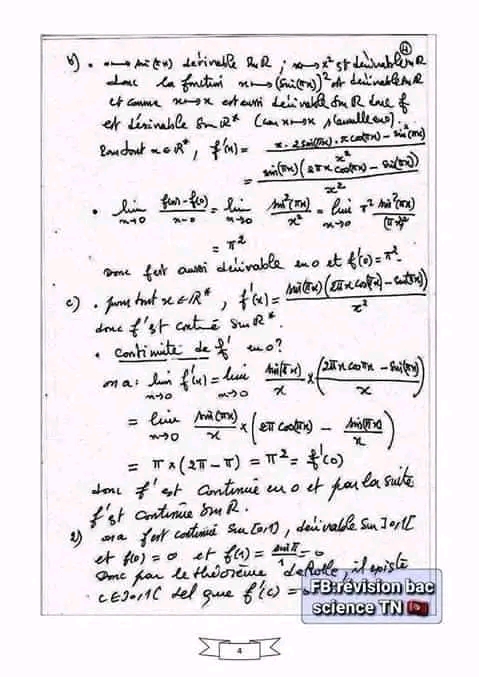 4
b) • x ⟼ sin(πx) dérivable sur R ; x ⟼ x² est dérivable sur R
donc la fonction x ⟼ (sin(πx))² est dérivable sur R
et comme x ⟼ x est aussi dérivable sur R donc f
est dérivable sur R* (car x ⟼ x s'annule en 0).
Pour tout x ∈ R*, f'(x) = (x · 2 sin(πx) · π cos(πx) − sin²(πx)) / x²
= sin(πx) (2πx cos(πx) − sin(πx)) / x²
• lim x→0 (f(x) − f(0)) / (x − 0) = lim x→0 sin²(πx) / x² = lim x→0 π² sin²(πx) / (πx)²
= π²
Donc f est aussi dérivable en 0 et f'(0) = π².
c) • pour tout x ∈ R*, f'(x) = sin(πx) (2πx cos(πx) − sin(πx)) / x²
donc f' est continue sur R*.
• Continuité de f' en 0 ?
on a : lim x→0 f'(x) = lim x→0 sin(πx) / x × ((2πx cos πx − sin(πx)) / x)
= lim x→0 sin(πx) / x × (2π cos(πx) − sin(πx) / x)
= π × (2π − π) = π² = f'(0)
donc f' est continue en 0 et par la suite
f' est continue sur R.
2) on a f est continue sur [0,1], dérivable sur ]0,1[
et f(0) = 0 et f(1) = sin π / 1 = 0
Donc par le théorème de Rolle, il existe
c ∈ ]0,1[ tel que f'(c) = 0
FB:révision bac
science TN
4